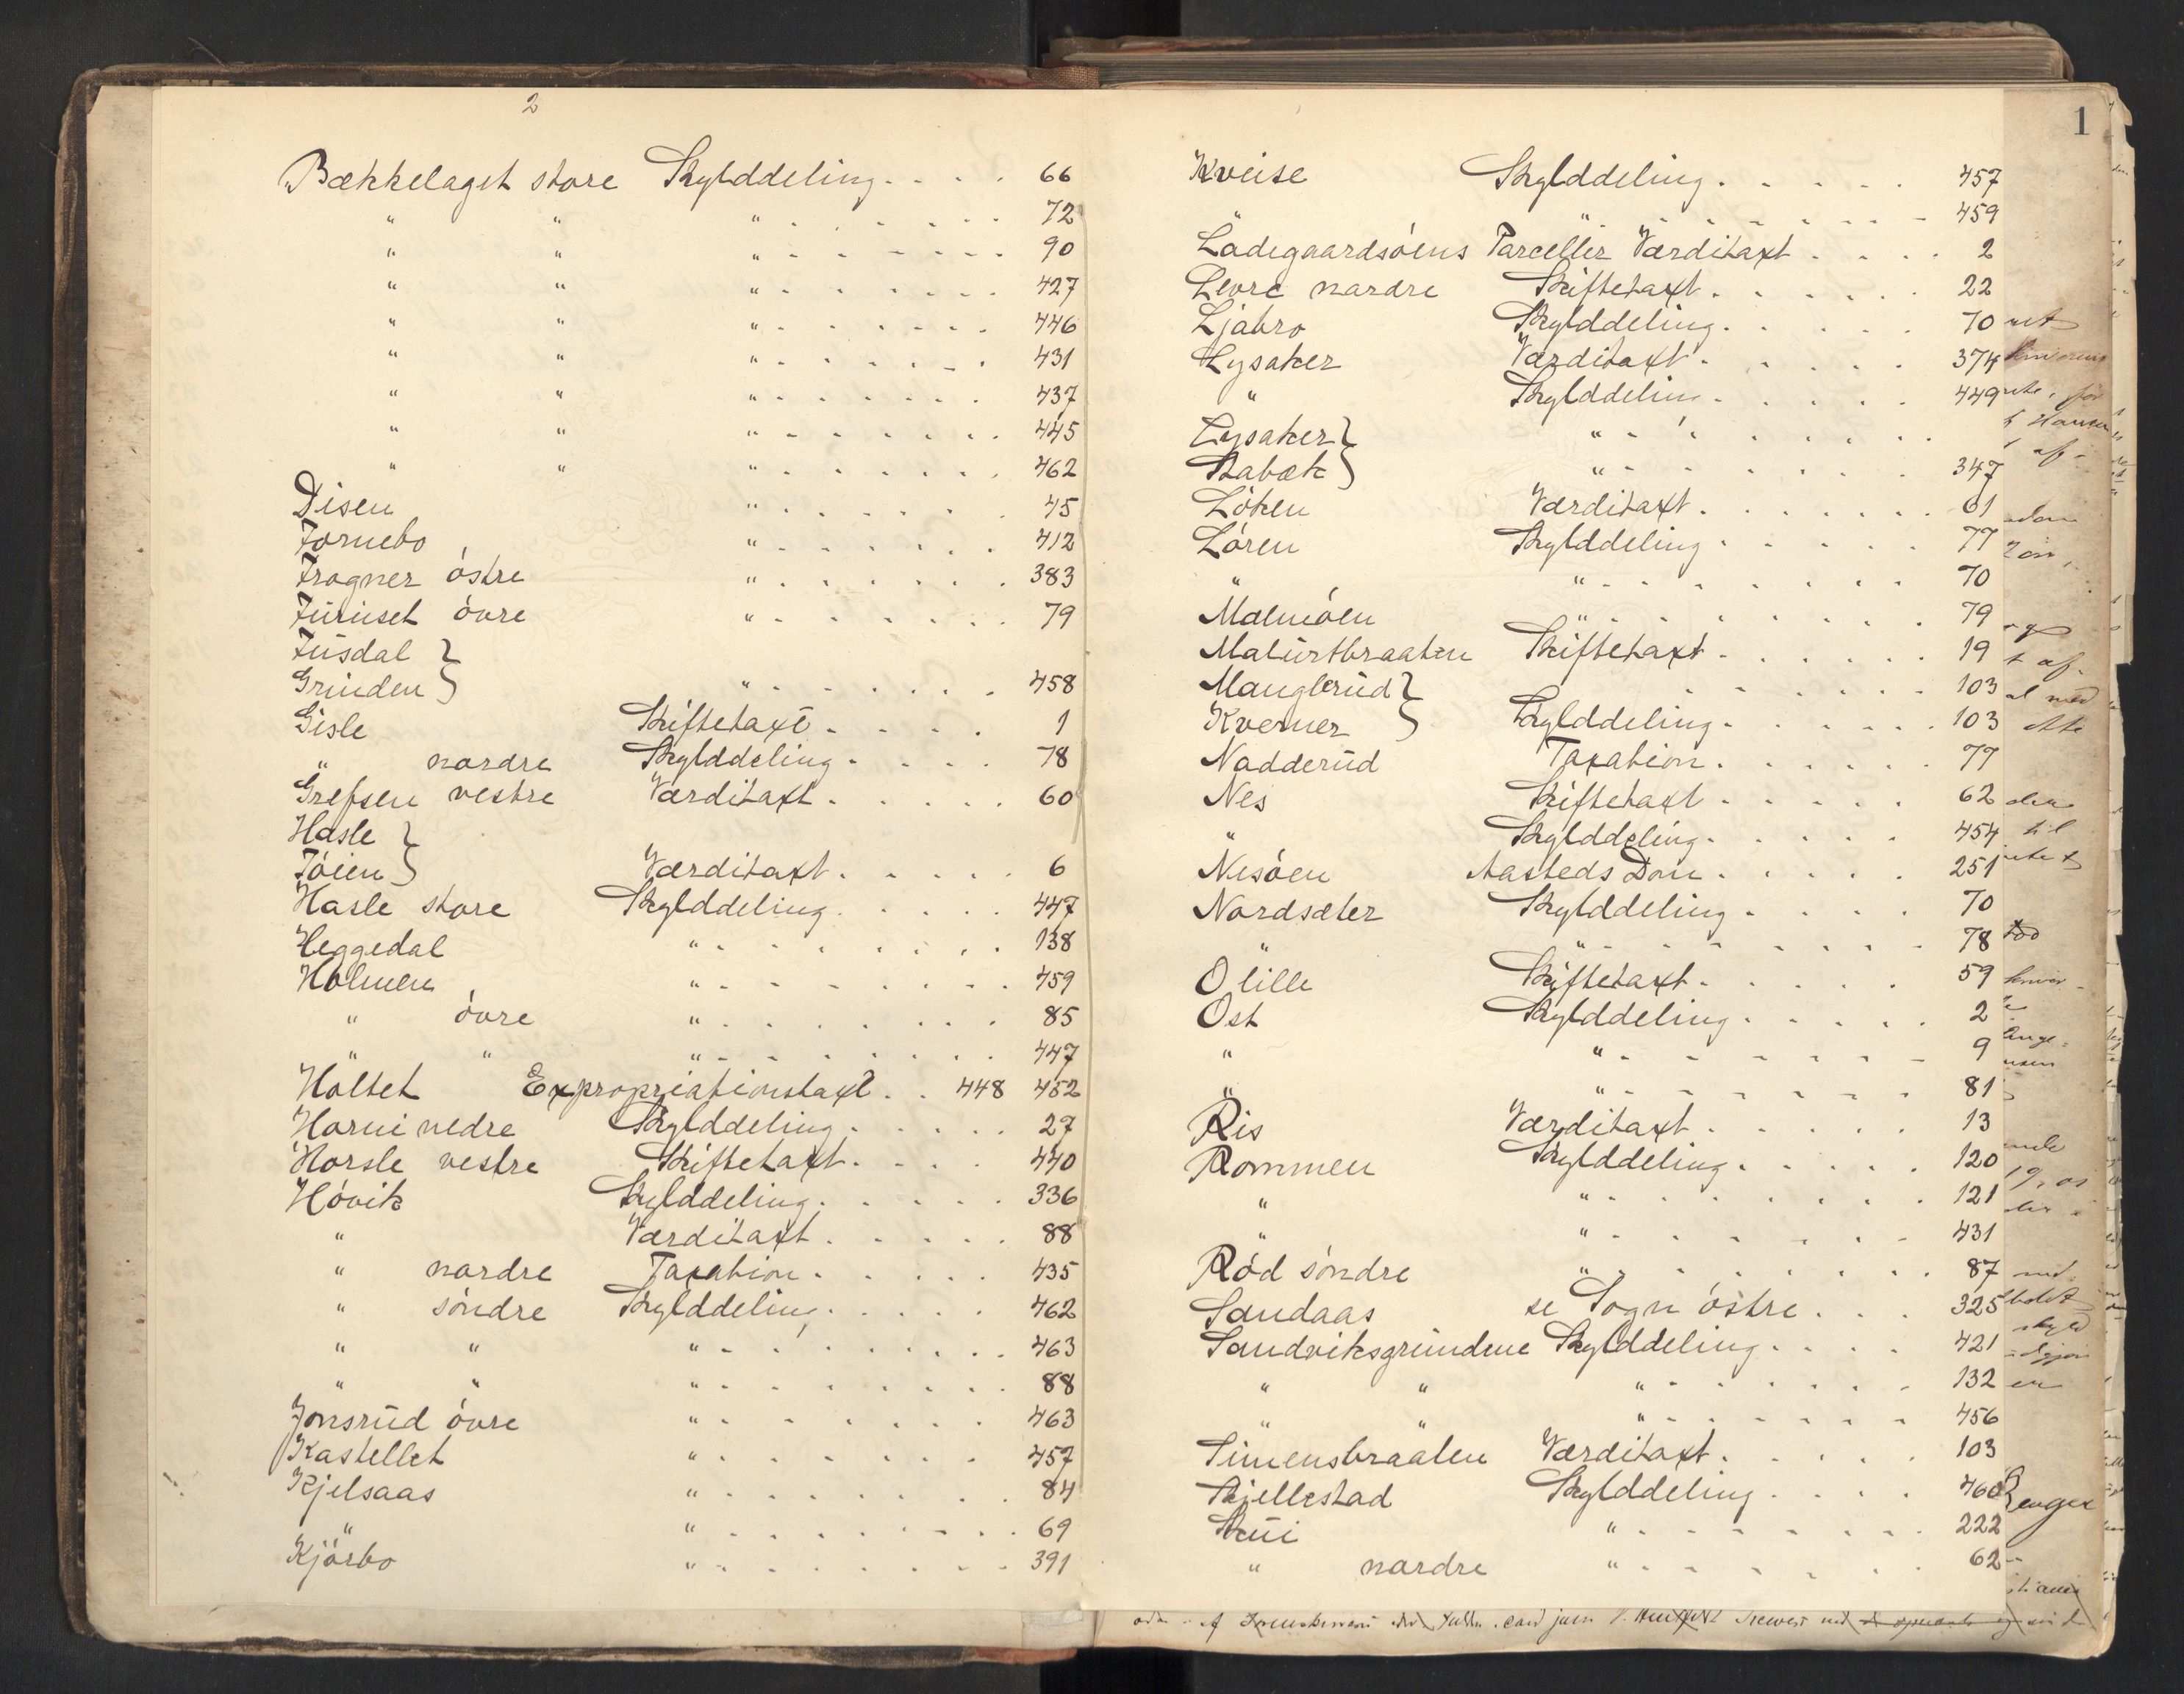 2
Bækkelaget store Skylddeling . . . . 66
" " " . . . . . . . 72
" " " . . . . . . . 90
" " " . . . . . . . 427
" " " . . . . . . . 446
" " " . . . . . . . 431
" " " . . . . . . . 437
" " " . . . . . . . 445
" " " . . . . . . . 462
Disen " . . . . . . 45
Fornebo " . . . . . . 412
Frogner östre " . . . . . . 383
Furuset övre " . . . . . . 79
Fusdal }
Grinden } " . . . . . . 458
Gisle Skiftetaxt . . . . 1
" nordre Skylddeling . . . . 78
Grefsen vestre Værditaxt . . . . . 60
Hasle }
Töien } Værditaxt . . . . . 6
Hasle store Skylddeling . . . . . 447
Heggedal " . . . . . . . 138
Holmen " . . . . . . . 459
" övre " . . . . . . . 85
" " " . . . . . . . 447
Holtet Expropriationstaxt . . 448 452
Horni nedre Skylddeling . . . . . 27
Horsle vestre Skiftetaxt . . . . 440
Hövik Skylddeling . . . . . 336
" Værditaxt . . . . . 88
" nordre Taxation . . . . . 435
" söndre Skylddeling . . . . . 462
" " " . . . . . . . 463
" " " . . . . . . . 88
Jonsrud övre " . . . . . . 463
Kastellet " . . . . . . 457
Kjelsaas " . . . . . . . 84
" " . . . . . . . 69
Kjörbo " . . . . . . . 391
1
Kveise Skylddeling . . . . . 457
" " . . . . . . . 459
Ladegaardsöens Parceller Værditaxt . . . . 2
Levre nordre Skiftetaxt . . . . . . 22
Ljabro Skylddeling . . . . . 70
Lysaker Værditaxt . . . . . 374
" Skylddelin . . . . . 449
Lysaker } " . . . . . . .
Stabæk } " . . . . . . . 347
Löken Værditaxt . . . . . . . 61
Lören Skylddeling . . . . . 77
" " . . . . . . . 70
Malmöen " . . . . . . . 79
Malurtbraaten Skiftetaxt . . . . . . 19
Manglerud } . . . . . . 103
Kverner } Skylddeling . . . . . . 103
Nadderud Taxation . . . . . . 77
Nes Skiftetaxt . . . . . 62
" Skylddeling . . . . . 454
Nesöen Aasteds Dom . . . . . 251
Nordsæter Skylddeling . . . . 70
" " . . . . . . . 78
O lille Skiftetaxt . . . . . 59
Ost Skylddeling . . . . . 2
" " . . . . . . . 9
" " . . . . . . . 81
Ris Værditaxt . . . . . 13
Rommen Skylddeling . . . . . 120
" " . . . . . . . 121
" " . . . . . . . 431
Röd söndre " . . . . . . . 87
Sandaas se Sogn östre . . . 325
Sandviksgrundene Skylddeling . . . . 421
" " " . . . . . . 132
" " " . . . . . . 456
Simensbraaten Værditaxt . . . . . 103
Skjellestad Skylddeling . . . . 460
Skui " . . . . . . . 222
" nordre " . . . . . . 62